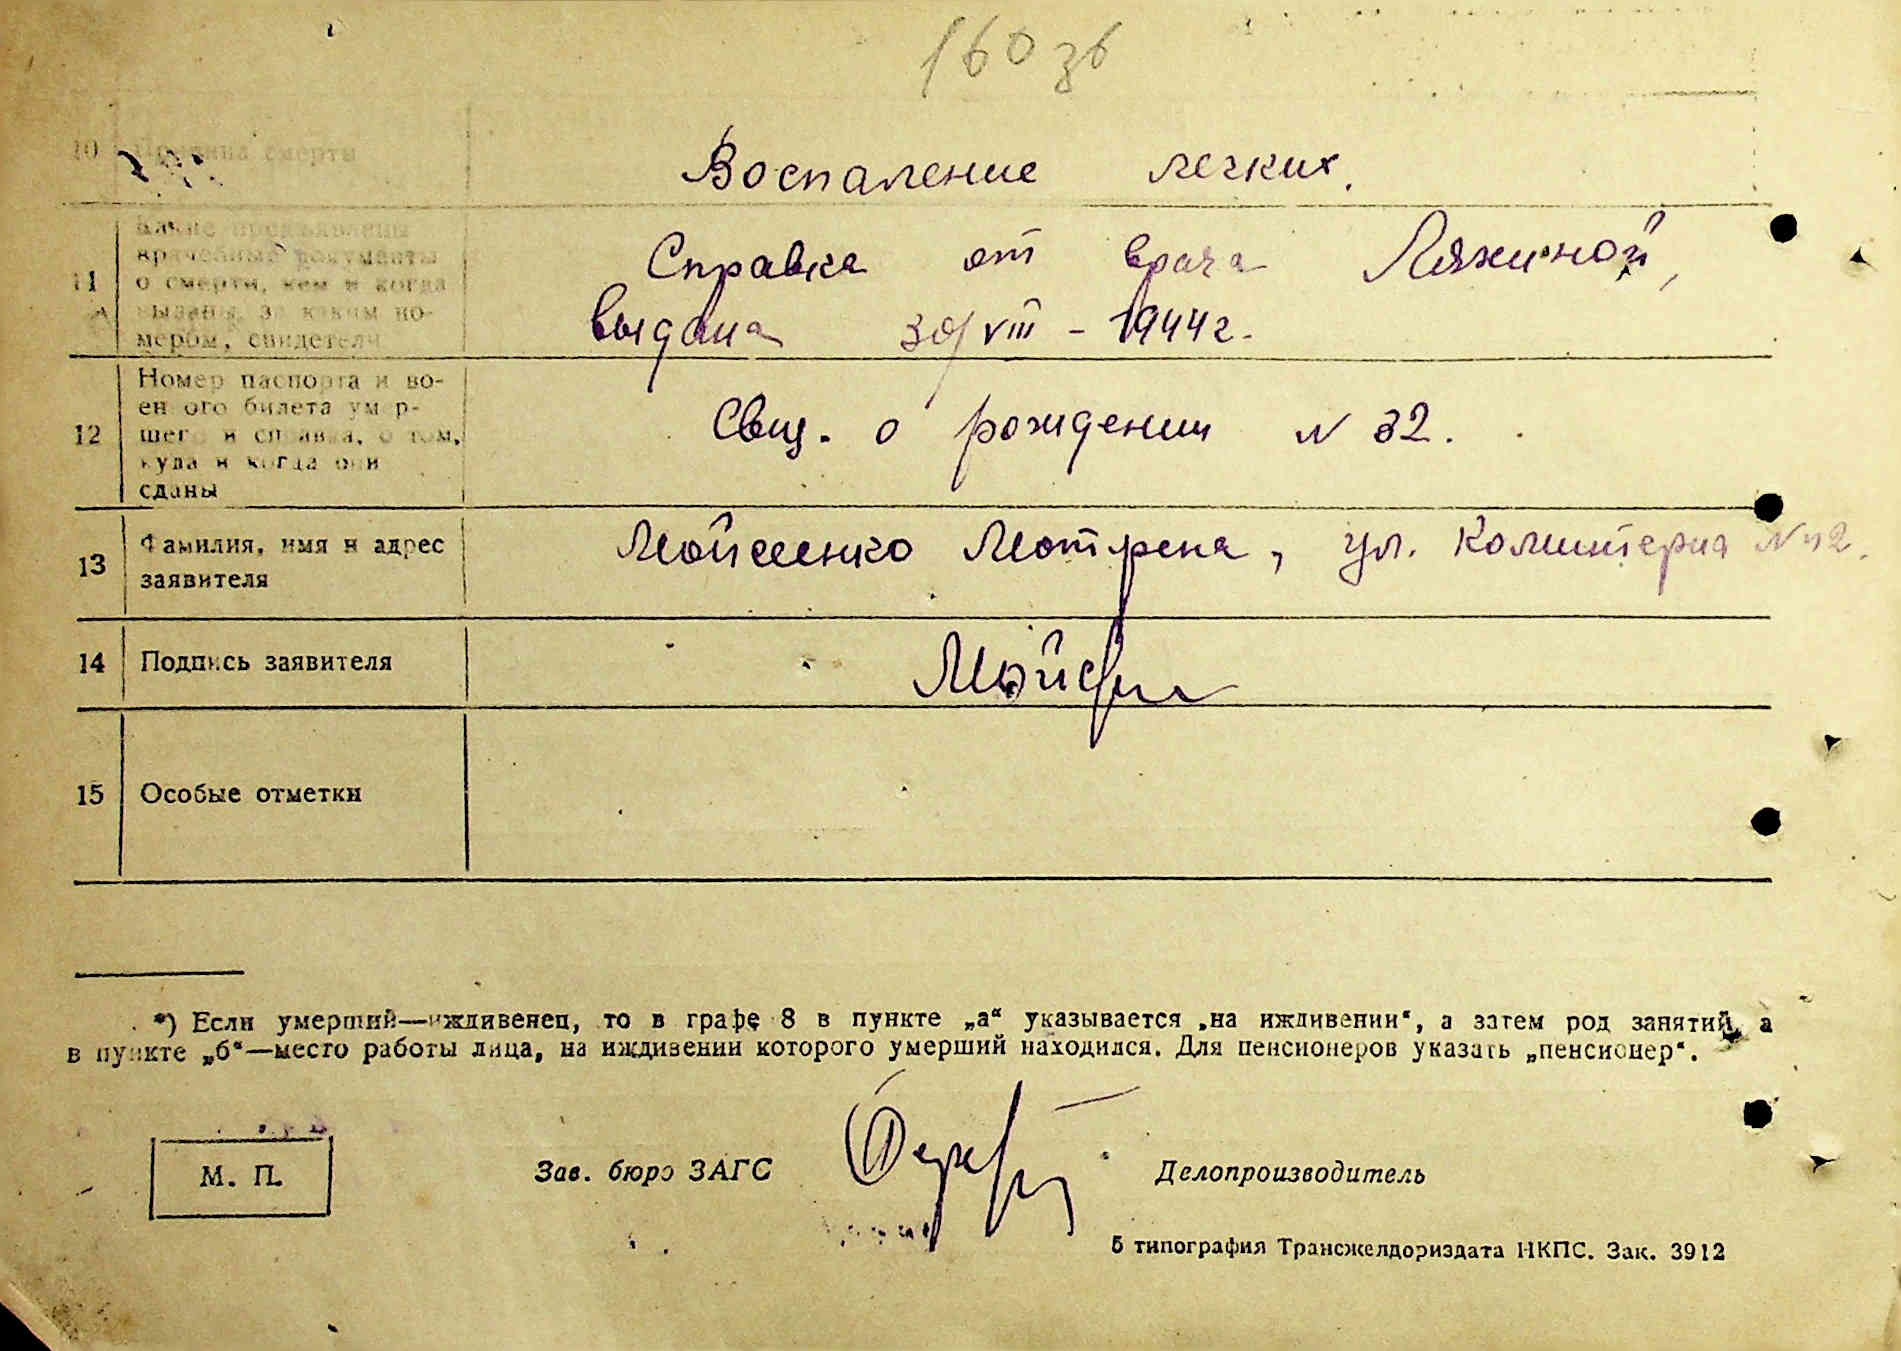 160 зв
10 Причина смерти
Воспаление легких.
Какие предъявлены
врачебные документы
11 о смерти, кем и когда
выданы, за каким но-
мером, свидетели
Справка от врача Ляжиной,
выдана 30/VIII - 1944 г.
Номер паспорта и во-
ен ого билета умер-
12 шего и справка, о том,
куда и когда они
сданы
Свид. о рождении N 32.
13 Фамилия, имя и адрес
заявителя
Мойсеенко Мотрена, ул. Коминтерна N 42.
14 Подпись заявителя
15 Особые отметки
*) Если умерший—иждивенец, то в графе 8 в пункте „а“ указывается „на иждивении“, а затем род занятий, а
в пункте „б“—место работы лица, на иждивении которого умерший находился. Для пенсионеров указать „пенсионер“.
М. П.
Зав. бюро ЗАГС
Делопроизводитель
5 типография Трансжелдориздата НКПС. Зак. 3912